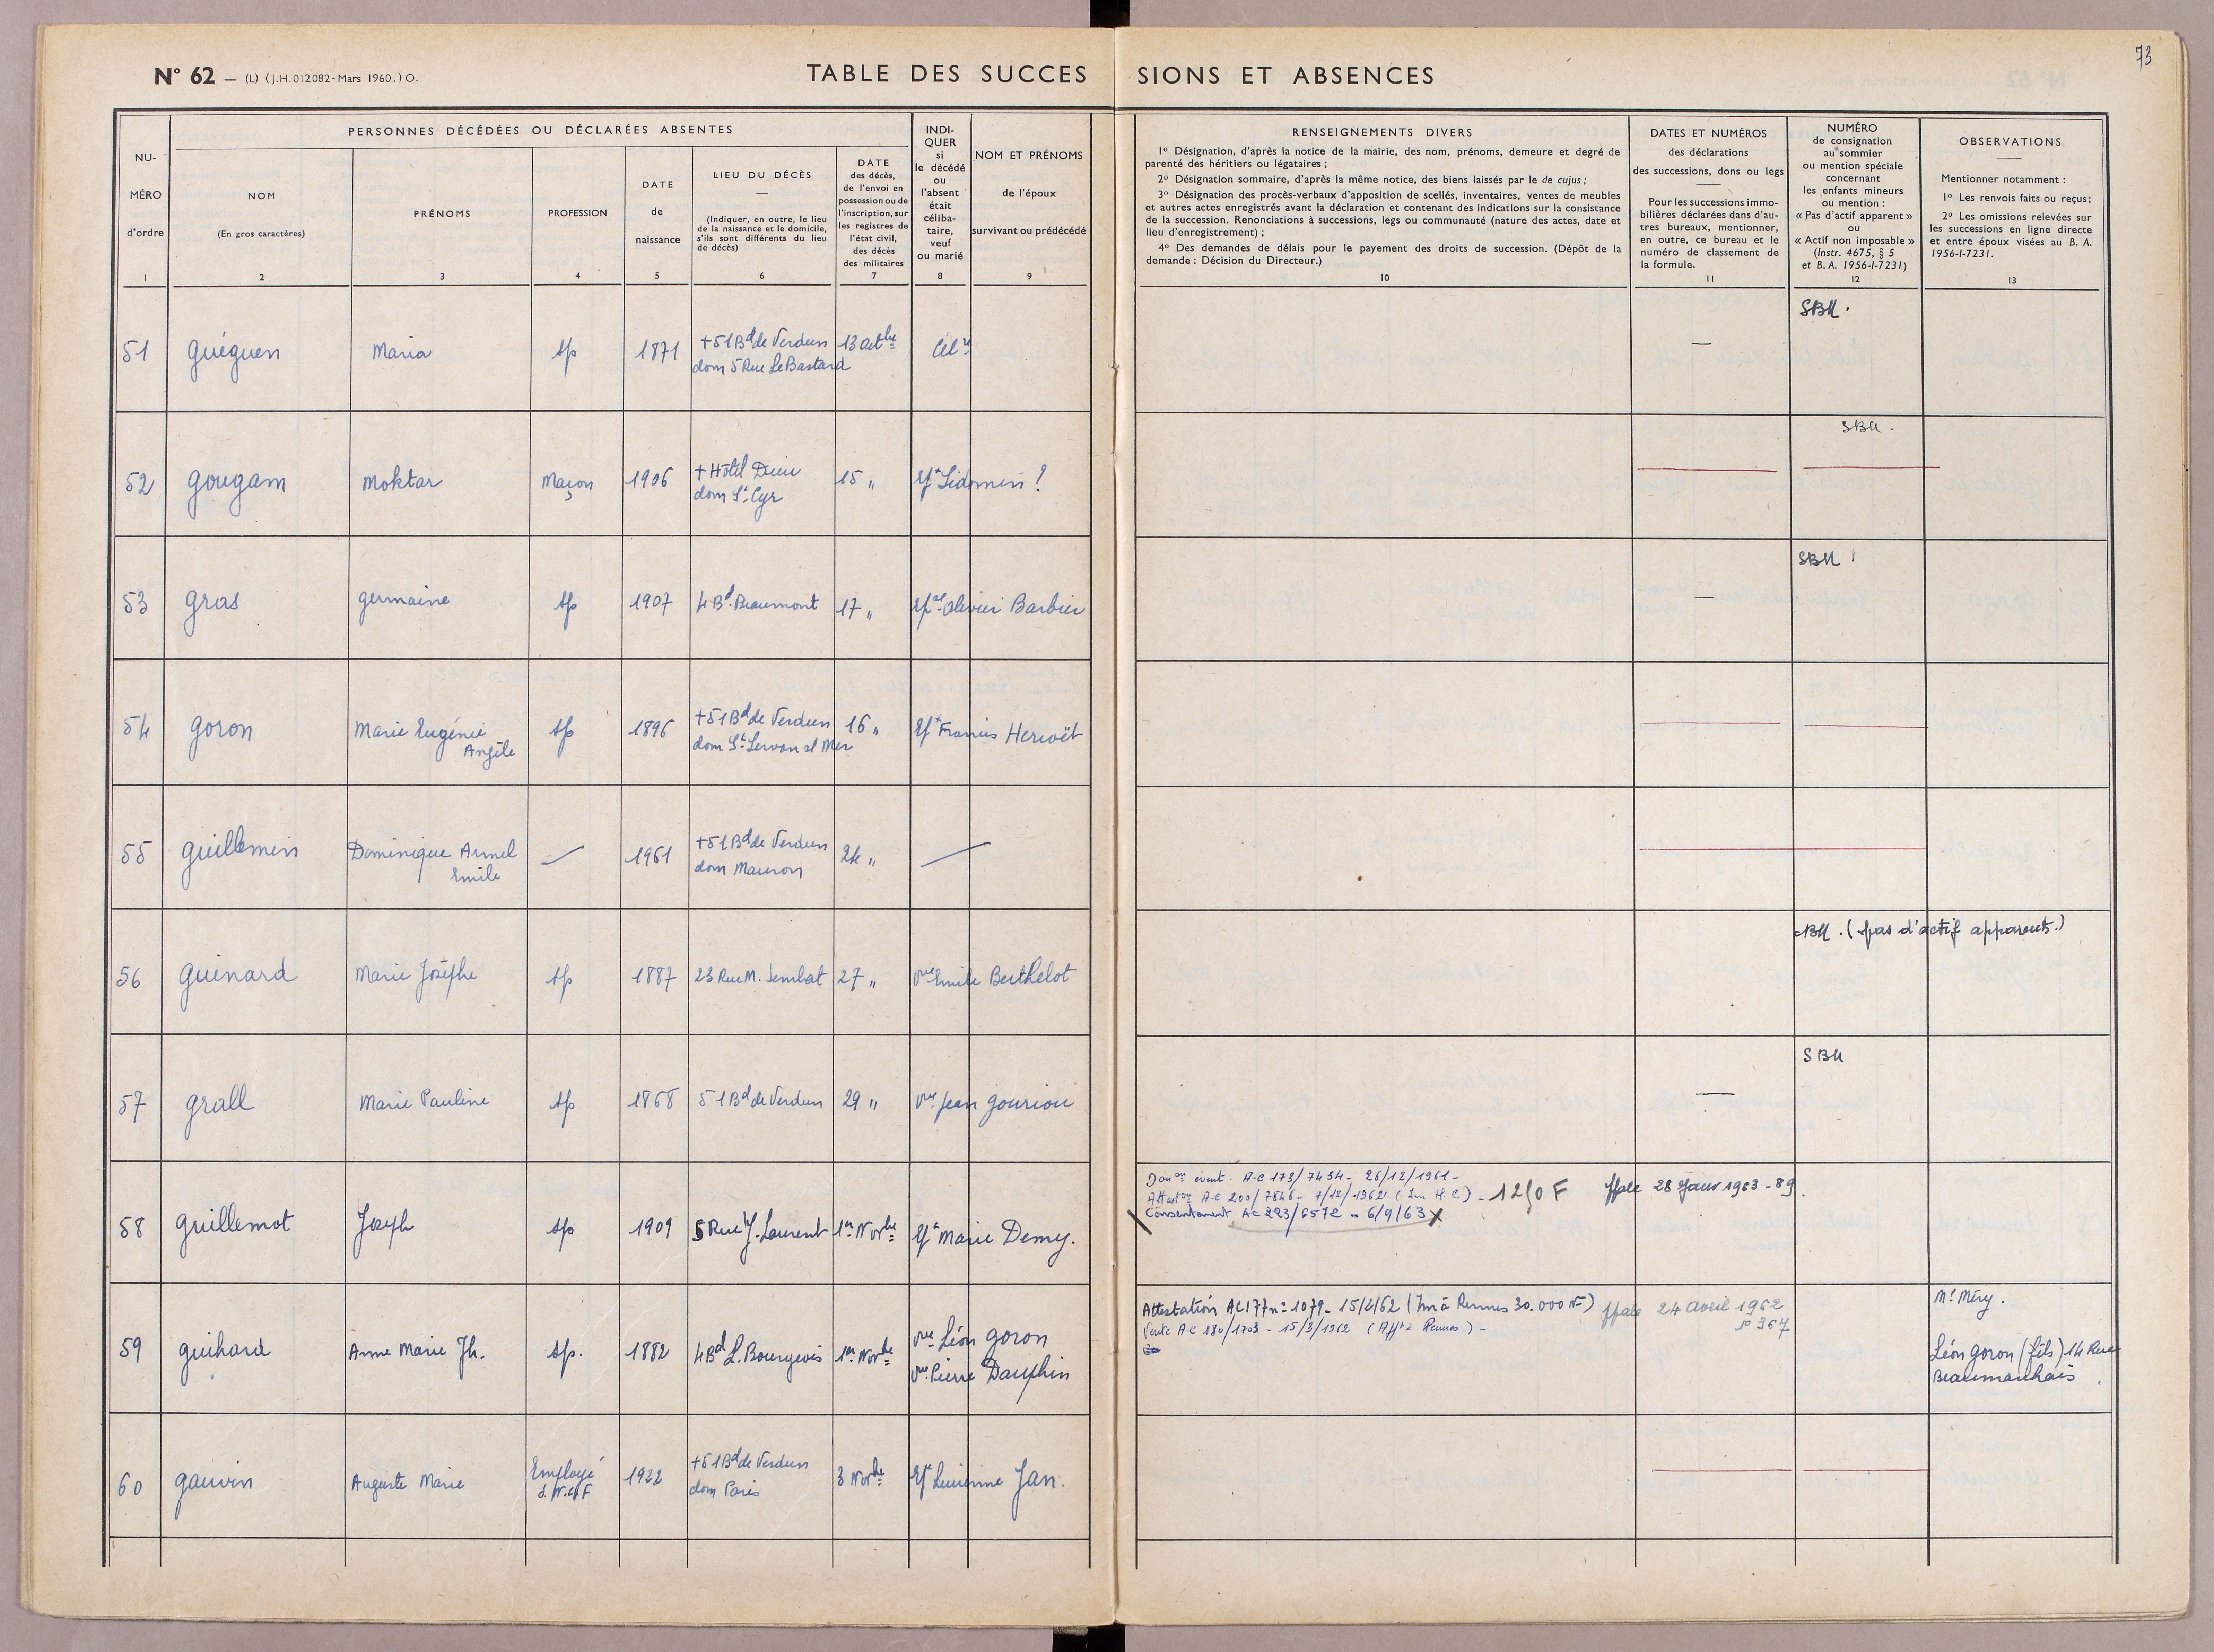 73
N° 62 — (L) (J.H.012082-Mars 1960.) O.
TABLE DES SUCCESSIONS ET ABSENCES
PERSONNES DÉCÉDÉES OU DÉCLARÉES ABSENTES
NU-
MÉRO
d'ordre
1
NOM
(En gros caractères)
2
PRÉNOMS
3
PROFESSION
4
DATE
de
naissance
5
LIEU DU DÉCÈS
(Indiquer, en outre, le lieu
de la naissance et le domicile,
s'ils sont différents du lieu
de décès)
6
DATE
des décès,
de l'envoi en
possession ou de
l'inscription, sur
les registres de
l'état civil,
des décès
des militaires
7
INDI-
QUER
si
le décédé
ou
l'absent
était
céliba-
taire,
veuf
ou marié
8
NOM ET PRÉNOMS
de l'époux
survivant ou prédécédé
9
RENSEIGNEMENTS DIVERS
1° Désignation, d'après la notice de la mairie, des nom, prénoms, demeure et degré de
parenté des héritiers ou légataires ;
2° Désignation sommaire, d'après la même notice, des biens laissés par le de cujus ;
3° Désignation des procès-verbaux d'apposition de scellés, inventaires, ventes de meubles
et autres actes enregistrés avant la déclaration et contenant des indications sur la consistance
de la succession. Renonciations à successions, legs ou communauté (nature des actes, date et
lieu d'enregistrement) ;
4° Des demandes de délais pour le payement des droits de succession. (Dépôt de la
demande : Décision du Directeur.)
10
DATES ET NUMÉROS
des déclarations
des successions, dons ou legs
Pour les successions immo-
bilières déclarées dans d'au-
tres bureaux, mentionner,
en outre, ce bureau et le
numéro de classement de
la formule.
11
NUMÉRO
de consignation
au sommier
ou mention spéciale
concernant
les enfants mineurs
ou mention :
« Pas d'actif apparent »
ou
« Actif non imposable »
(Instr. 4675, § 5
et B. A. 1956-I-7231)
12
OBSERVATIONS
Mentionner notamment :
1° Les renvois faits ou reçus ;
2° Les omissions relevées sur
les successions en ligne directe
et entre époux visées au B. A.
1956-I-7231.
13
51 guéguen Maria sp 1871 +51 Bd de Verdun 13 octbre Celre — SBM.
dom 5 Rue Le Bastard
52 gougam moktar Maçon 1906 + Hôtel Dieu 15 " Lidomen ? SBM.
dom St Cyr
53 gras germaine sp 1907 4 Bd Beaumont 17 " Olivier Barbier — SBM
54 goron Marie Eugénie sp 1896 +51 Bd de Verdun 16 " Francis Hervoët
Angèle dom St Servan s/ Mer
55 guillemin Dominique Armel — 1961 +51 Bd de Verdun 24 " —
Emile dom Mauron
56 guinard Marie Josèphe sp 1887 23 Rue M. Sembat 27 " vve Emile Berthelot SBM. (pas d'actif apparent.)
57 grall Marie Pauline sp 1868 51 Bd de Verdun 29 " vve Jean gouriou — SBM
58 guillemot Joseph sp 1909 5 Rue J. Laurent 1er Novbre Marie Demy.
Donon évent. AC 173/7434 - 26/12/1961 -
Attaton AC 200/7846 - 7/12/1962 (Im H C) - 1250 F
28 Janv 1963 - 89.
Consentement AC 223/6572 - 6/9/63 X
59 guihard Anne Marie Jh. sp. 1882 4 Bd L. Bourgeois 1er Novbre vve Léon goron
vve Pierre Dauphin
Attestation AC 177 n° 1079 - 15/2/62 (Im à Rennes 30.000 NF)
24 avril 1962
n° 367
Vente AC 180/1703 - 15/3/1962 (Afft à Rennes) -
Me Méry.
Léon goron (fils) 14 Rue
Beaumarchais
60 gauvin Auguste Marie Employé 1922 +51 Bd de Verdun 3 Novbre Lucienne Jan.
S.N.C.F dom Paris